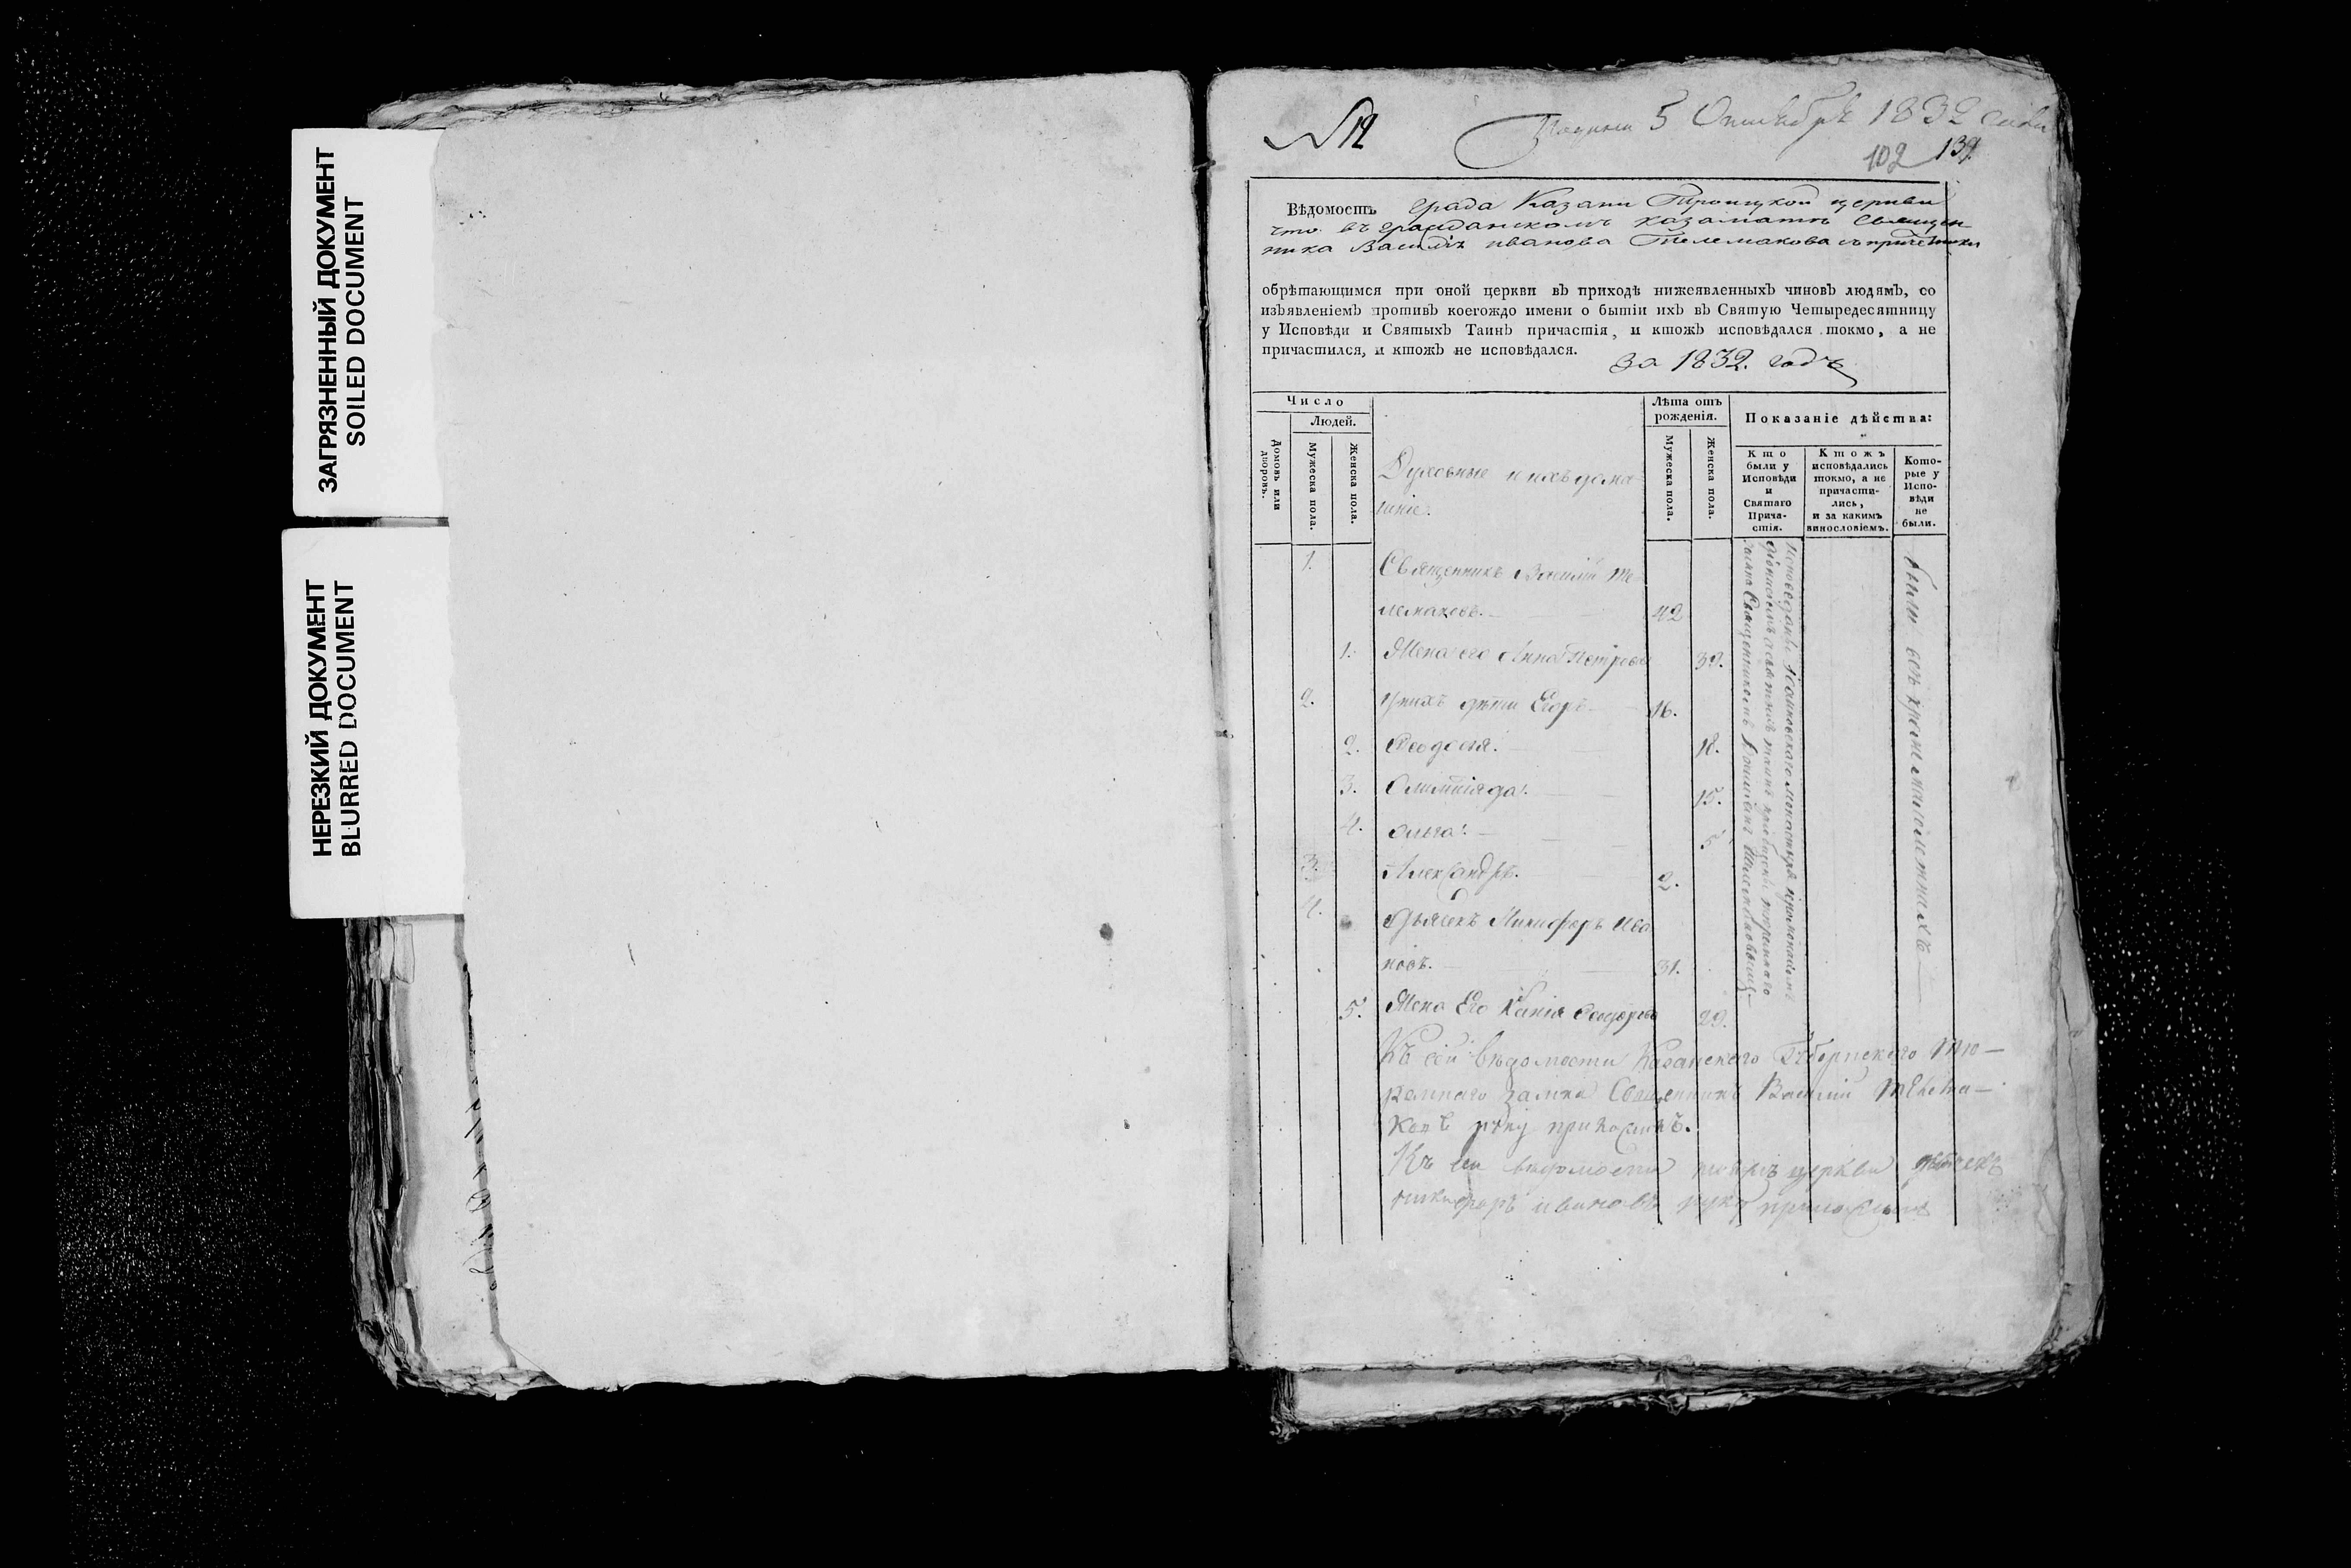 ЗАГРЯЗНЕННЫЙ ДОКУМЕНТ
SOILED DOCUMENT
НЕРЕЗКИЙ ДОКУМЕНТ
BLURRED DOCUMENT
№ 12
5 Октября 1832
102 139.
Вѣдомость града Казани Троицкой церкви
что въ гражданскомъ казаматѣ Священ
ника Василья иванова Телемакова съ причетники
обрѣтающимся при оной церкви въ приходѣ нижеявленныхъ чиновъ людямъ, со
изъявленіемъ противъ коегождо имени о бытіи ихъ въ Святую Четыредесятницу
у Исповѣди и Святыхъ Таинъ причастія, и ктожъ исповѣдался токмо, а не
причастился, и ктожъ не исповѣдался.
за 1832. годъ
Число
Людей.
Домовъ или дворовъ.
Мужеска пола.
Женска пола.
Духовные и ихъ дома
шніе.
Лѣта отъ рожденія.
Мужеска пола.
Женска пола.
Показаніе дѣйства:
Кто были у Исповѣди и Святаго Прича-стія.
Ктожъ исповѣдались токмо, а не причасти-лись, и за какимъ винословіемъ.
Кото-рые у Испо-вѣди не были.
1. Священникъ Василій Те
лемаковъ. 42
1. Жена его Анна Петрова 39.
2. У нихъ дѣти Егоръ 16.
2. Феодосія. 18.
3. Олимпіяда. 15.
4. Ольга. 5
3. Александръ. 2.
4. Дьячекъ Никифоръ Ива
новъ. 31.
5. Жена Его Ксенія Федорова 29.
были всѣ кромѣ малолетнихъ
Къ сей вѣдомости Казанского Тю—
ремнаго замка Священникъ Василій Телема—
ковъ руку приложилъ.
Къ сей ведомости церкви дьячекъ
никифоръ ивановъ руку приложилъ